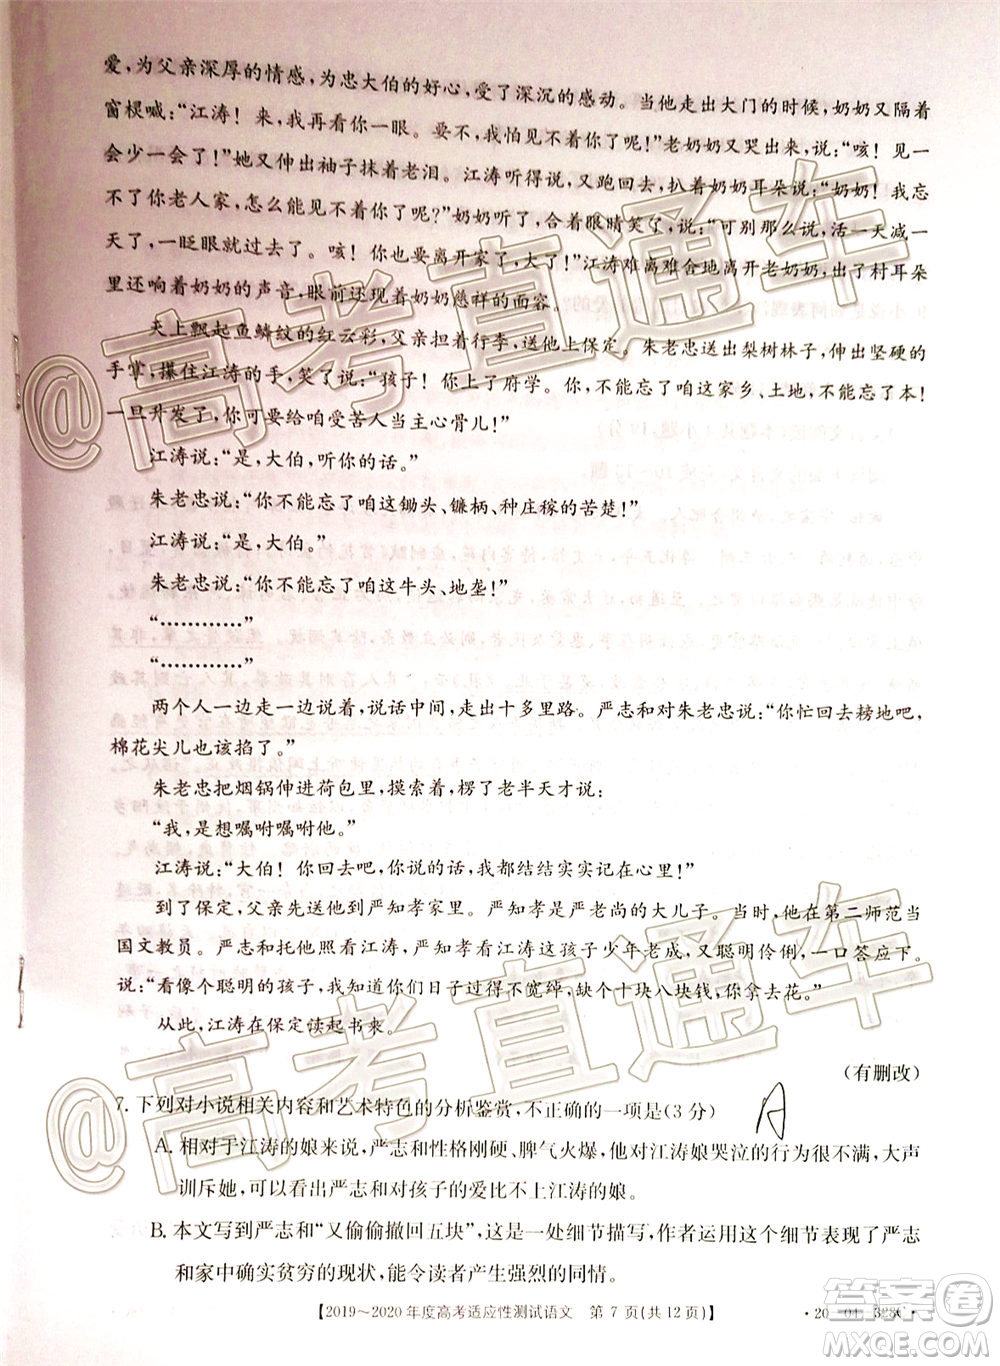 爱,为父亲深厚的情感,为忠大伯的好心,受了深沉的感动。当他走出大门的时候,奶奶又隔着
窗棂喊:“江涛!来,我再看你一眼。要不,我怕见不到你了!”老奶奶又跑出来,说:“咳!见一
会少一会了!”她又伸出袖子抹着老泪。江涛听得说,又跑回去,扒着奶奶耳朵说:“奶奶!我忘
不了你老人家,怎么能见不着我呢?”奶奶听了,合着眼睛笑了,说:“可别那么说,活一天减一
天了,一眨眼就过去。咳!你也要离开家了,大了!”江涛难离难舍地离开老奶奶,出了村耳朵
里还响着奶奶的声音,眼前还现着奶奶慈祥的面容。
天上飘起鱼鳞纹的红云彩,父亲担着行李,送他上保定。朱老忠送出梨树林子,伸出坚硬的
手掌,攥住江涛的手,笑了笑说:“孩子!你上了府学。你,不能忘了咱这家乡、土地,不能忘了本!
一旦升发了,你可要给咱受苦人当主心骨儿!”
江涛说:“是,大伯,听你的话。”
朱老忠说:“你不能忘了咱这锄头、镰柄、种庄稼的苦楚!”
江涛说:“是,大伯。”
朱老忠说:“你不能忘了咱这牛头、地垄!”
“…………”
“…………”
两个人一边走一边说着,说话中间,走出十多里路。严志和对朱老忠说:“你忙回去耪地吧,
棉花尖儿也该掐了。”
朱老忠把烟锅伸进荷包里,摸索着,楞了老半天才说:
“我,是想嘱咐嘱咐他。”
江涛说:“大伯!你回去吧,你说的话,我都结结实实记在心里!”
到了保定,父亲先送他到严知孝家里。严知孝是严老尚的大儿子。现在,他在第二师范当
国文教员。严志和托他照看江涛,严知孝看江涛这孩子少年老成,又聪明伶俐,一口答应下。
说:“看像个聪明的孩子,我知道你们日子过得不宽绰,缺个十块八块钱,你拿去花。”
从此,江涛在保定读起书来。
(有删改)
7. 下列对小说相关内容和艺术特色的分析鉴赏,不正确的一项是(3分) A
A. 相对于江涛的娘来说,严志和性格刚硬、脾气火爆,他对江涛娘哭泣的行为很不满,大声
训斥她,可以看出严志和对孩子的爱比不上江涛的娘。
B. 本文写到严志和“又偷偷撤回五块”,这是一处细节描写,作者运用这个细节表现了严志
和家中确实贫穷的现状,能令读者产生强烈的同情。
【2019~2020年度高考适应性测试语文 第7页(共12页)】 ·20-04-328C·
@高考直通车
@高考直通车
答案圈
MXQE.COM